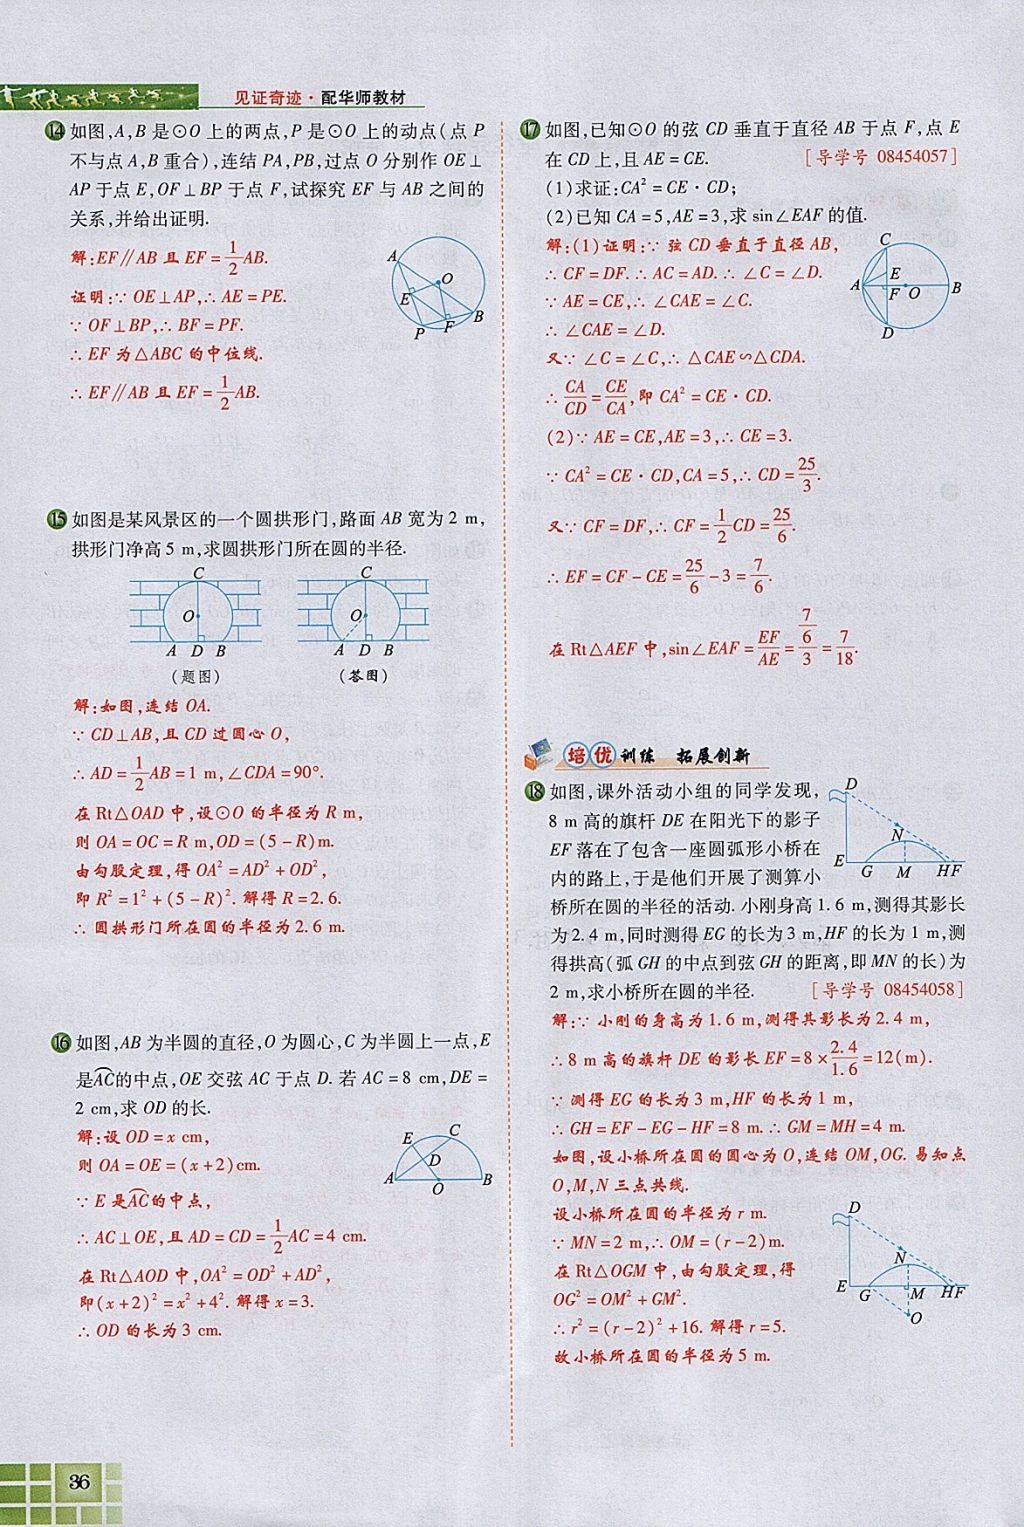 见证奇迹·配华师教材
14 如图,A,B 是⊙O 上的两点,P 是⊙O 上的动点(点 P
不与点 A,B 重合),连结 PA,PB,过点 O 分别作 OE⊥
AP 于点 E,OF⊥BP 于点 F,试探究 EF 与 AB 之间的
关系,并给出证明.
解:EF∥AB 且 EF=1/2AB.
证明:∵OE⊥AP,∴AE=PE.
∵OF⊥BP,∴BF=PF.
∴EF 为△ABC 的中位线.
∴EF∥AB 且 EF=1/2AB.
A
O
E
P
F
B
15 如图是某风景区的一个圆拱形门,路面 AB 宽为 2 m,
拱形门净高 5 m,求圆拱形门所在圆的半径.
C
O
A D B
(题图)
C
O
A D B
(答图)
解:如图,连结 OA.
∵CD⊥AB,且 CD 过圆心 O,
∴AD=1/2AB=1 m,∠CDA=90°.
在 Rt△OAD 中,设⊙O 的半径为 R m,
则 OA=OC=R m,OD=(5-R)m.
由勾股定理,得 OA²=AD²+OD²,
即 R²=1²+(5-R)². 解得 R=2.6.
∴圆拱形门所在圆的半径为 2.6 m.
16 如图,AB 为半圆的直径,O 为圆心,C 为半圆上一点,E
是AC的中点,OE 交弦 AC 于点 D. 若 AC=8 cm,DE=
2 cm,求 OD 的长.
解:设 OD=x cm,
则 OA=OE=(x+2)cm.
∵E 是AC的中点,
∴AC⊥OE,且 AD=CD=1/2AC=4 cm.
在 Rt△AOD 中,OA²=OD²+AD²,
即(x+2)²=x²+4². 解得 x=3.
∴OD 的长为 3 cm.
E
C
D
A
O
B
17 如图,已知⊙O 的弦 CD 垂直于直径 AB 于点 F,点 E
在 CD 上,且 AE=CE. [导学号 08454057]
(1)求证:CA²=CE·CD;
(2)已知 CA=5,AE=3,求 sin∠EAF 的值.
解:(1)证明:∵弦 CD 垂直于直径 AB,
∴CF=DF.∴AC=AD.∴∠C=∠D.
∵AE=CE,∴∠CAE=∠C.
∴∠CAE=∠D.
又∵∠C=∠C,∴△CAE∽△CDA.
∴CA/CD=CE/CA,即 CA²=CE·CD.
(2)∵AE=CE,AE=3,∴CE=3.
∵CA²=CE·CD,CA=5,∴CD=25/3.
又∵CF=DF,∴CF=1/2CD=25/6.
∴EF=CF-CE=25/6-3=7/6.
在 Rt△AEF 中,sin∠EAF=EF/AE=(7/6)/3=7/18.
C
E
A
F O
B
D
培优训练 拓展创新
18 如图,课外活动小组的同学发现,
8 m 高的旗杆 DE 在阳光下的影子
EF 落在了包含一座圆弧形小桥在
内的路上,于是他们开展了测算小
桥所在圆的半径的活动. 小刚身高 1.6 m,测得其影长
为 2.4 m,同时测得 EG 的长为 3 m,HF 的长为 1 m,测
得拱高(弧 GH 的中点到弦 GH 的距离,即 MN 的长)为
2 m,求小桥所在圆的半径. [导学号 08454058]
D
N
E
G M HF
解:∵小刚的身高为 1.6 m,测得其影长为 2.4 m,
∴8 m 高的旗杆 DE 的影长 EF=8×2.4/1.6=12(m).
∵测得 EG 的长为 3 m,HF 的长为 1 m,
∴GH=EF-EG-HF=8 m.∴GM=MH=4 m.
如图,设小桥所在圆的圆心为 O,连结 OM,OG. 易知点
O,M,N 三点共线.
设小桥所在圆的半径为 r m.
∵MN=2 m,∴OM=(r-2)m.
在 Rt△OGM 中,由勾股定理,得
OG²=OM²+GM².
∴r²=(r-2)²+16. 解得 r=5.
故小桥所在圆的半径为 5 m.
D
N
E
G M HF
O
36